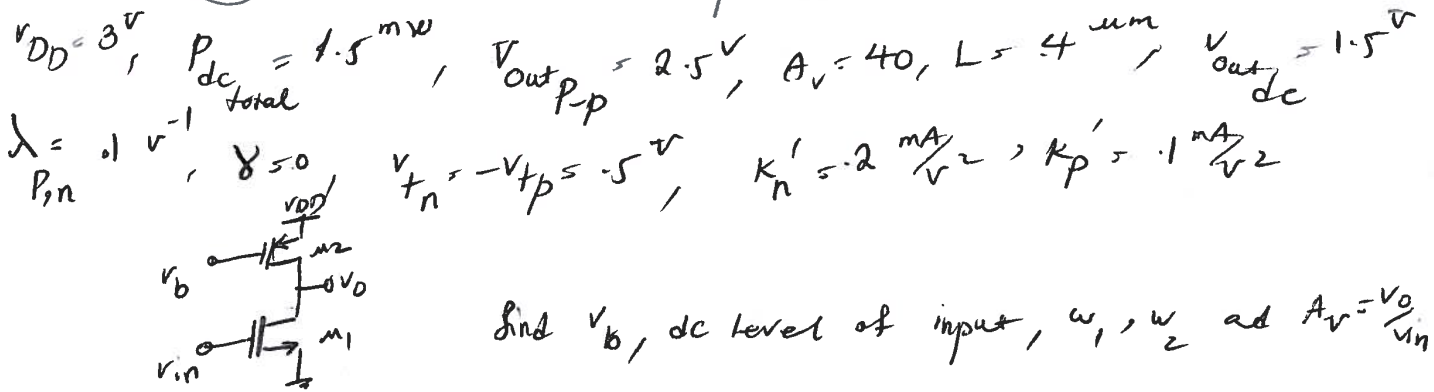 V_DD = 3^V, P_dc total = 1.5^mw, V_out P-P = 2.5^V, A_v = 40, L = .4 um, V_out dc = 1.5^V
λ_P,n = .1 v^-1, γ = 0, V_tn = -V_tp = .5^V, K'_n = .2 mA/V^2, K'_p = .1 mA/V^2
VDD
M2
V_b
V_O
M1
V_in
find V_b, dc level of input, W_1, W_2 ad A_v = V_o/V_in